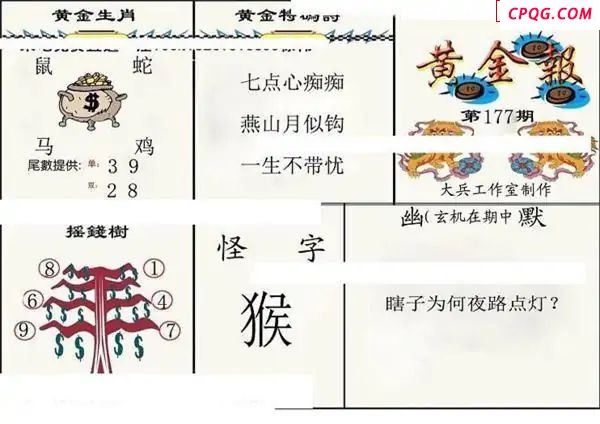 CPQG.COM
黄金生肖
鼠 蛇
$
马 鸡
尾數提供: 单: 3 9
双: 2 8
七点心痴痴
燕山月似钩
一生不带忧
黄金報
第177期
大兵工作室制作
摇錢樹
⑧ ①
⑥ ④
⑨ ⑦
怪 字
猴
幽(玄机在期中)默
瞎子为何夜路点灯?